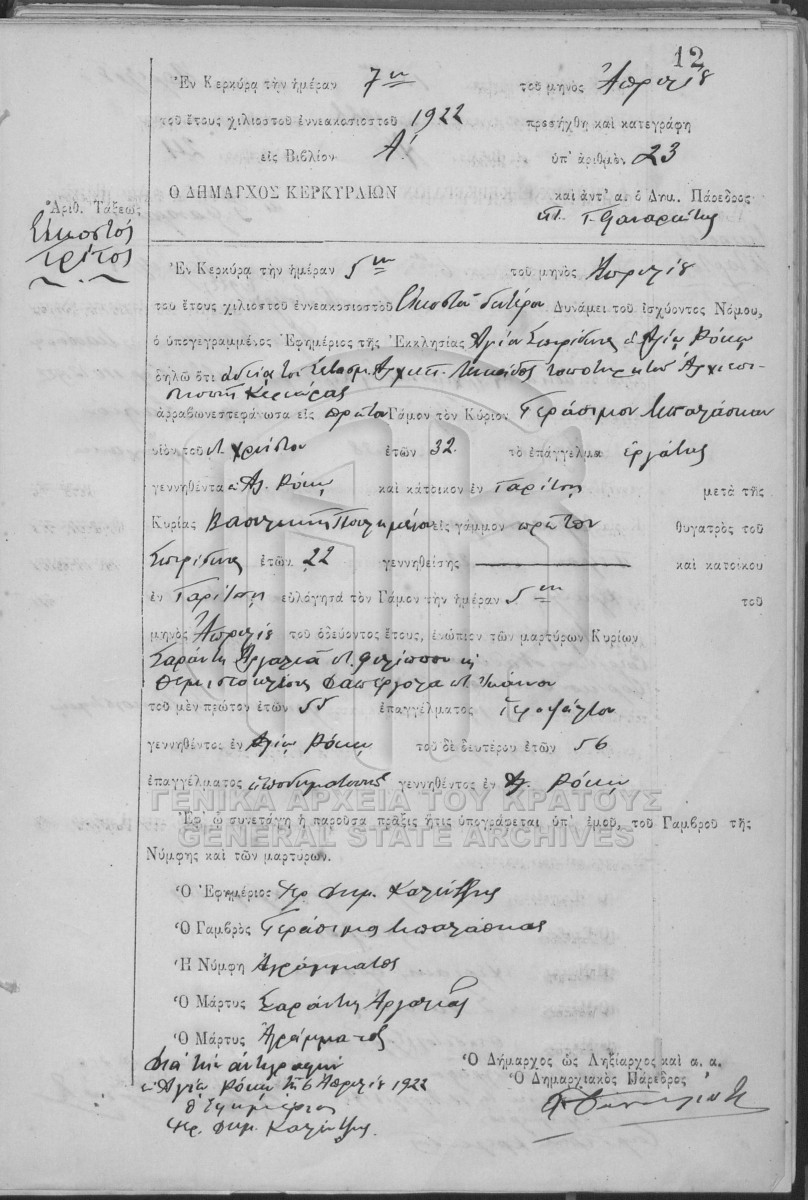 12
Ἐν Κερκύρᾳ τὴν ἡμέραν 7ην τοῦ μηνὸς Ἀπριλίου
τοῦ ἔτους χιλιοστοῦ ἐννεακοσιοστοῦ 1922 προσήχθη καὶ κατεγράφη
εἰς Βιβλίον Α΄. ὑπ' ἀριθμὸν 23
Ο ΔΗΜΑΡΧΟΣ ΚΕΡΚΥΡΑΙΩΝ καὶ ἀντ' α. ὁ Δημ. Πάρεδρος
Ἀριθ. Τάξεως
Εἰκοστός
τρίτος
Ἐν Κερκύρᾳ τὴν ἡμέραν 5ην τοῦ μηνὸς Ἀπριλίου
τοῦ ἔτους χιλιοστοῦ ἐννεακοσιοστοῦ Εἰκοστοῦ δευτέρου Δυνάμει τοῦ ἰσχύοντος Νόμου,
ὁ ὑπογεγραμμένος Ἐφημέριος τῆς Ἐκκλησίας Ἁγίου Σπυρίδωνος Ἁγίου Ρόκου
δηλῶ ὅτι ἀδείᾳ τοῦ τοποτηρητοῦ Ἀρχιεπι-
σκοπῆς Κερκύρας
ἀρραβωνεστεφάνωσα εἰς πρῶτον Γάμον τὸν Κύριον Γεράσιμον Μπαλάσκαν
υἱὸν τοῦ Χρήστου ἐτῶν 32. τὸ ἐπάγγελμα ἐργάτης
γεννηθέντα Ἁγ. Ρόκῳ καὶ κάτοικον ἐν Γαρίτσῃ μετὰ τῆς
Κυρίας Βασιλικῆς εἰς γάμμον πρῶτον θυγατρὸς τοῦ
Σπυρίδωνος ἐτῶν 22 γεννηθείσης καὶ κατοίκου
ἐν Γαρίτσῃ εὐλόγησα τὸν Γάμον τὴν ἡμέραν 5ην τοῦ
μηνὸς Ἀπριλίου τοῦ ὁδεύοντος ἔτους, ἐνώπιον τῶν μαρτύρων Κυρίων
Σαράντη Φιλίππου
Θεμιστοκλέους
τοῦ μὲν πρώτου ἐτῶν 55 ἐπαγγέλματος ἱεροψάλτου
γεννηθέντος ἐν Ἁγίῳ Ρόκῳ τοῦ δὲ δευτέρου ἐτῶν 56
ἐπαγγέλματος γεννηθέντος ἐν Ἁγ. Ρόκῳ
ΓΕΝΙΚΑ ΑΡΧΕΙΑ ΤΟΥ ΚΡΑΤΟΥΣ
Ἐφ' ᾧ συνετάγη ἡ παροῦσα πρᾶξις ἥτις ὑπογράφεται ὑπ' ἐμοῦ, τοῦ Γαμβροῦ τῆς
GENERAL STATE ARCHIVES
Νύμφης καὶ τῶν μαρτύρων.
Ὁ Ἐφημέριος Δημ. Καλούδης
Ὁ Γαμβρὸς Γεράσιμος Μπαλάσκας
Ἡ Νύμφη Ἀγράμματος
Ὁ Μάρτυς Σαράντης
Ὁ Μάρτυς Ἀγράμματος
Διὰ τὴν ἀντιγραφήν
Ἁγίῳ Ρόκῳ τῇ 6 Ἀπριλίου 1922
Ὁ Ἐφημέριος
Δημ. Καλούδης.
Ὁ Δήμαρχος ὡς Ληξίαρχος καὶ α. α.
Ὁ Δημαρχιακὸς Πάρεδρος